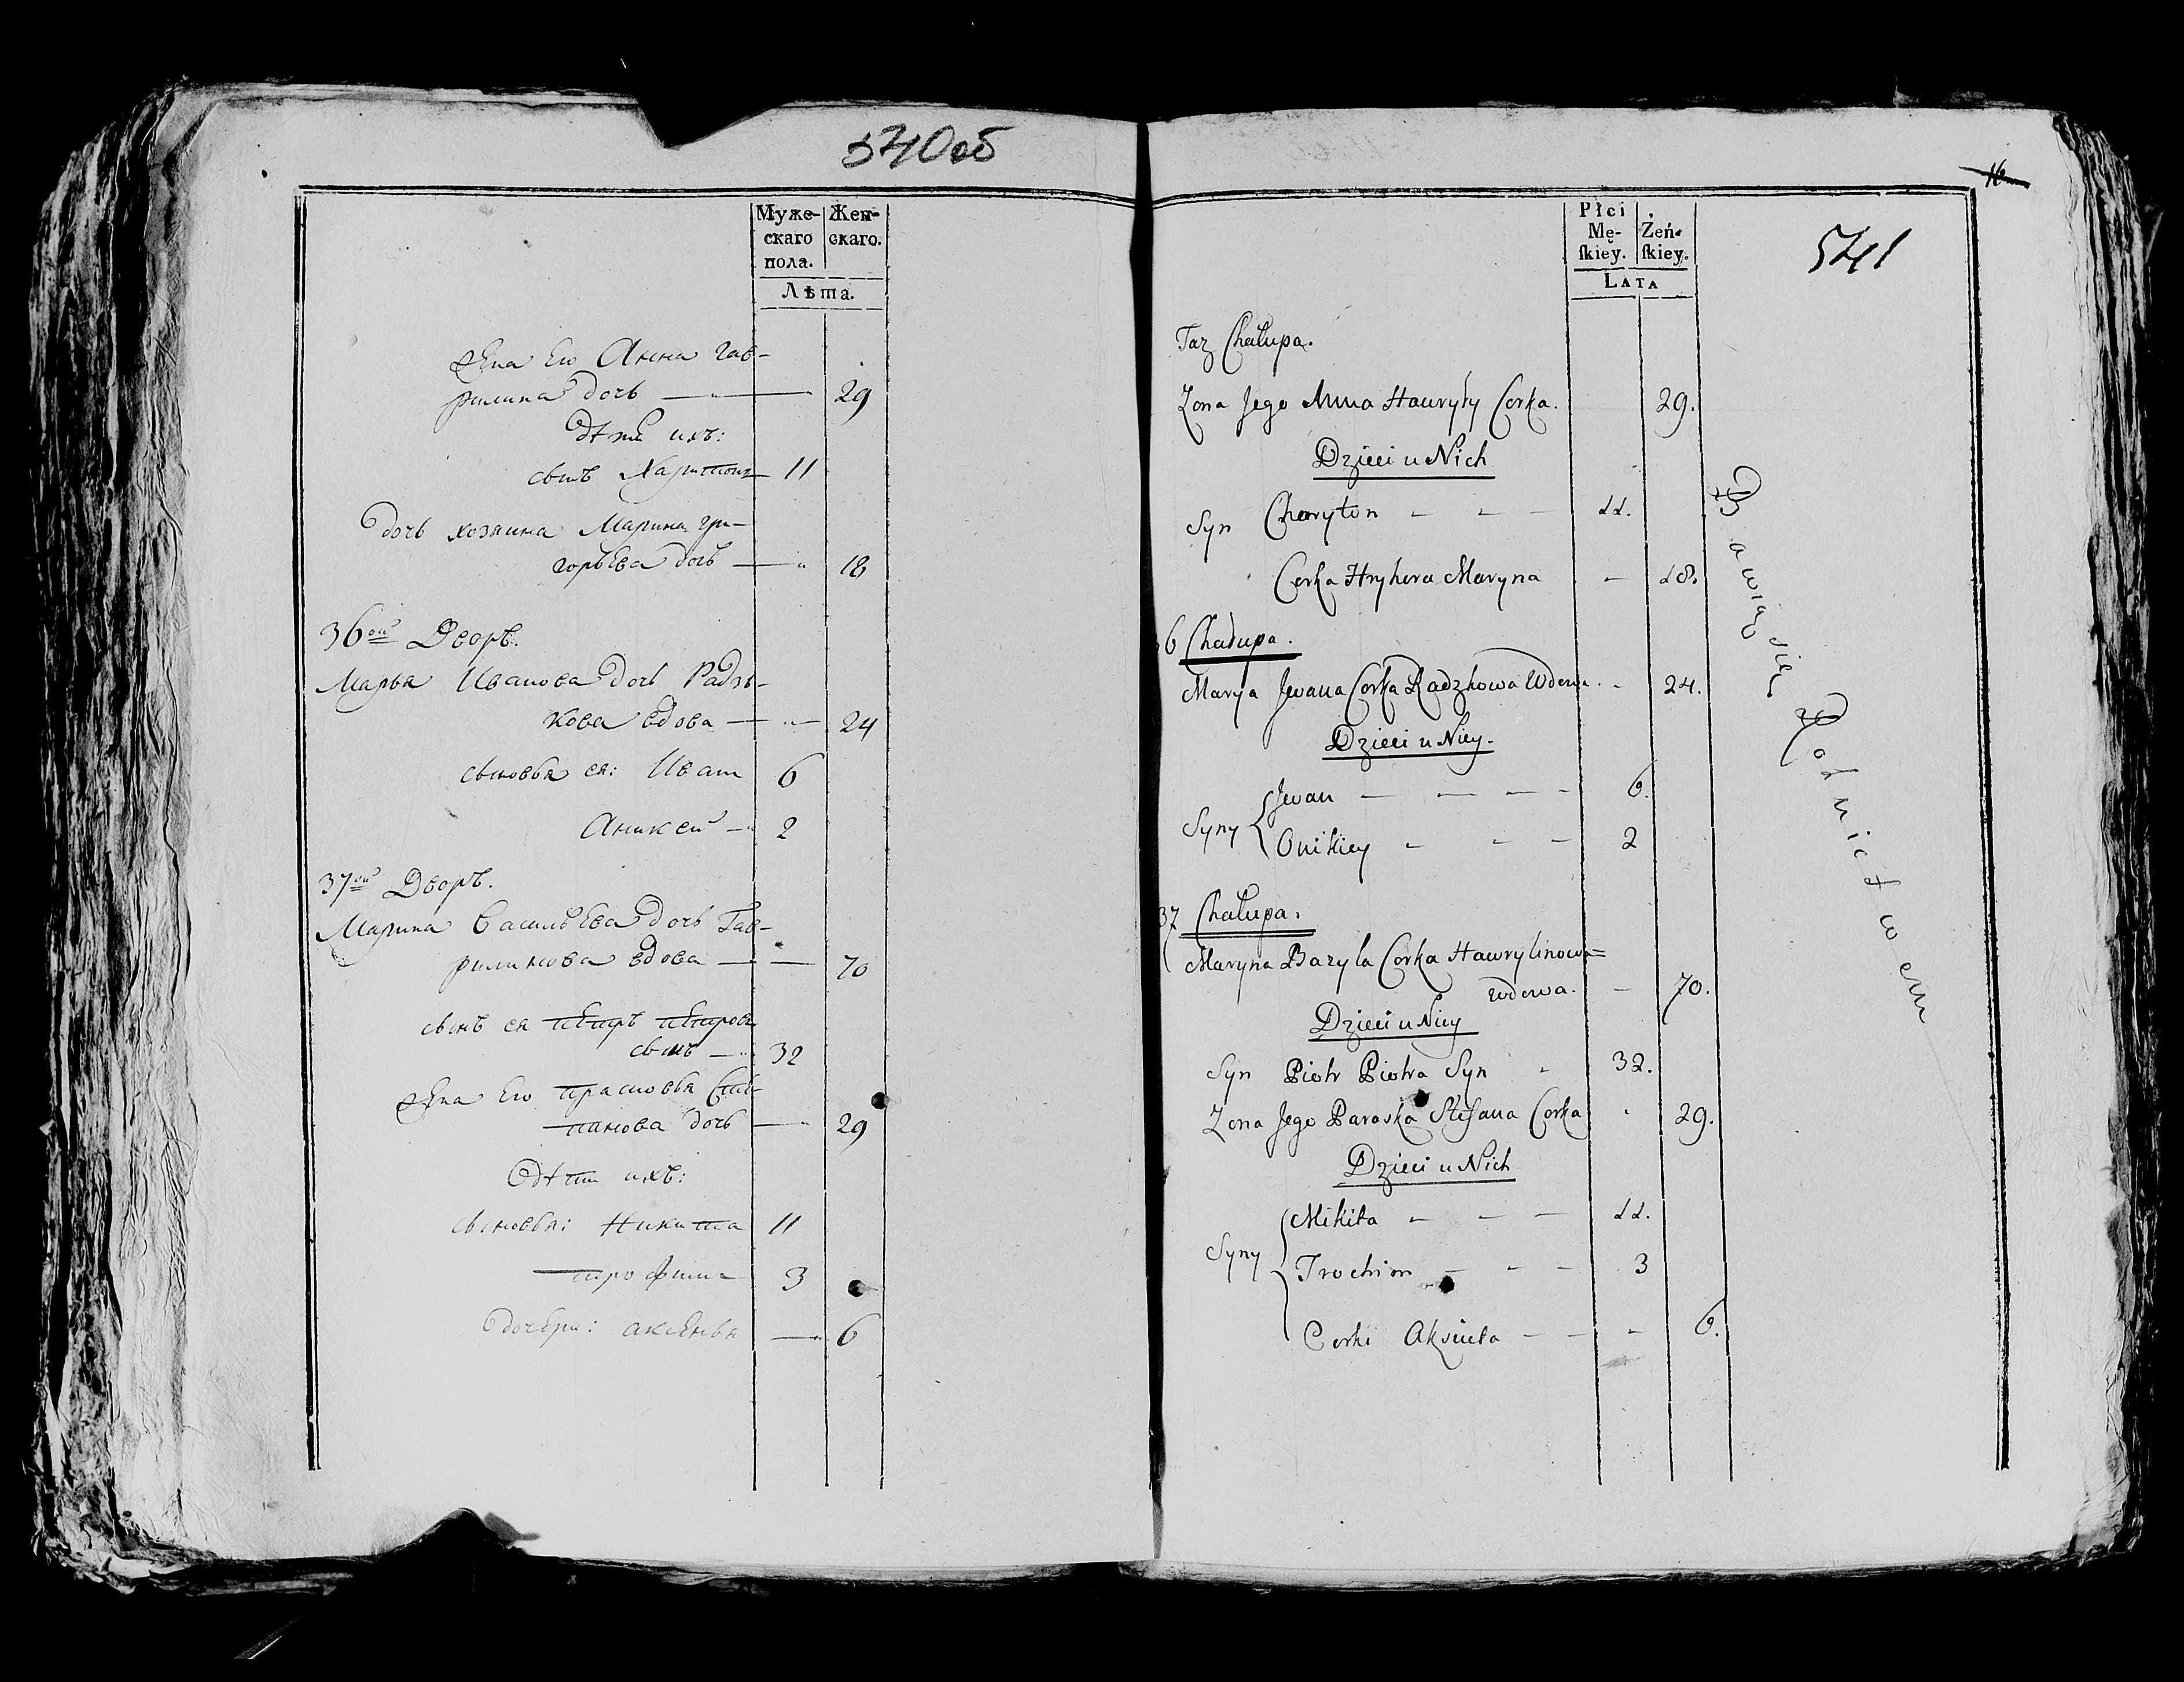 540об
Муже- Жен-
скаго скаго.
пола.
Лѣта.
жена Его Анна гав-
рилина дочь — 29
дѣти ихъ:
сынъ Харитонъ 11
дочь хозяина Марина гри-
горьева дочь — 18
36ой Дворъ.
Марья Иванова дочь Радзь-
кова вдова — 24
сыновья ея: Иванъ 6
Аникей — 2
37ой Дворъ.
Марина Васильева дочь Гав-
рилинова вдова — 70
сынъ ея петръ петровъ
сынъ — 32
жена Его прасковья Сте-
панова дочь — 29
дѣти ихъ:
сыновья: Никита 11
трофимъ 3
дочери: аксенья — 6
16
541
Płci Żeń-
Mę- skiey.
skiey.
LATA
Taż Chałupa.
Żona Jego Anna Hawryły Corka. 29.
Dzieci u Nich
Syn Charyton - - - 11.
Corka Hryhora Maryna - 18.
36 Chałupa.
Marya Jwana Corka Radzkowa Wdowa. - 24.
Dzieci u Niey.
Jwan — — — - 6.
Syny
Onikiey - - - 2
37 Chałupa.
Maryna Bazyla Corka Hawrylinowa=
wdowa. - 70.
Dzieci u Niey
Syn Piotr Piotra Syn - 32.
Żona Jego Paraska Stefana Corka 29.
Dzieci u Nich
Mikita - - - 11.
Syny
Trochim - - - 3
Corki Aksieta - - - 6.
Bawią się Rolnictwem